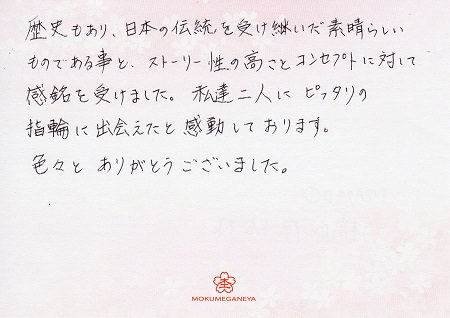 歴史もあり、日本の伝統を受け継いだ素晴らしい
ものである事と、ストーリー性の高さとコンセプトに対して
感銘を受けました。私達二人にピッタリの
指輪に出会えたと感動しております。
色々とありがとうございました。
MOKUMEGANEYA